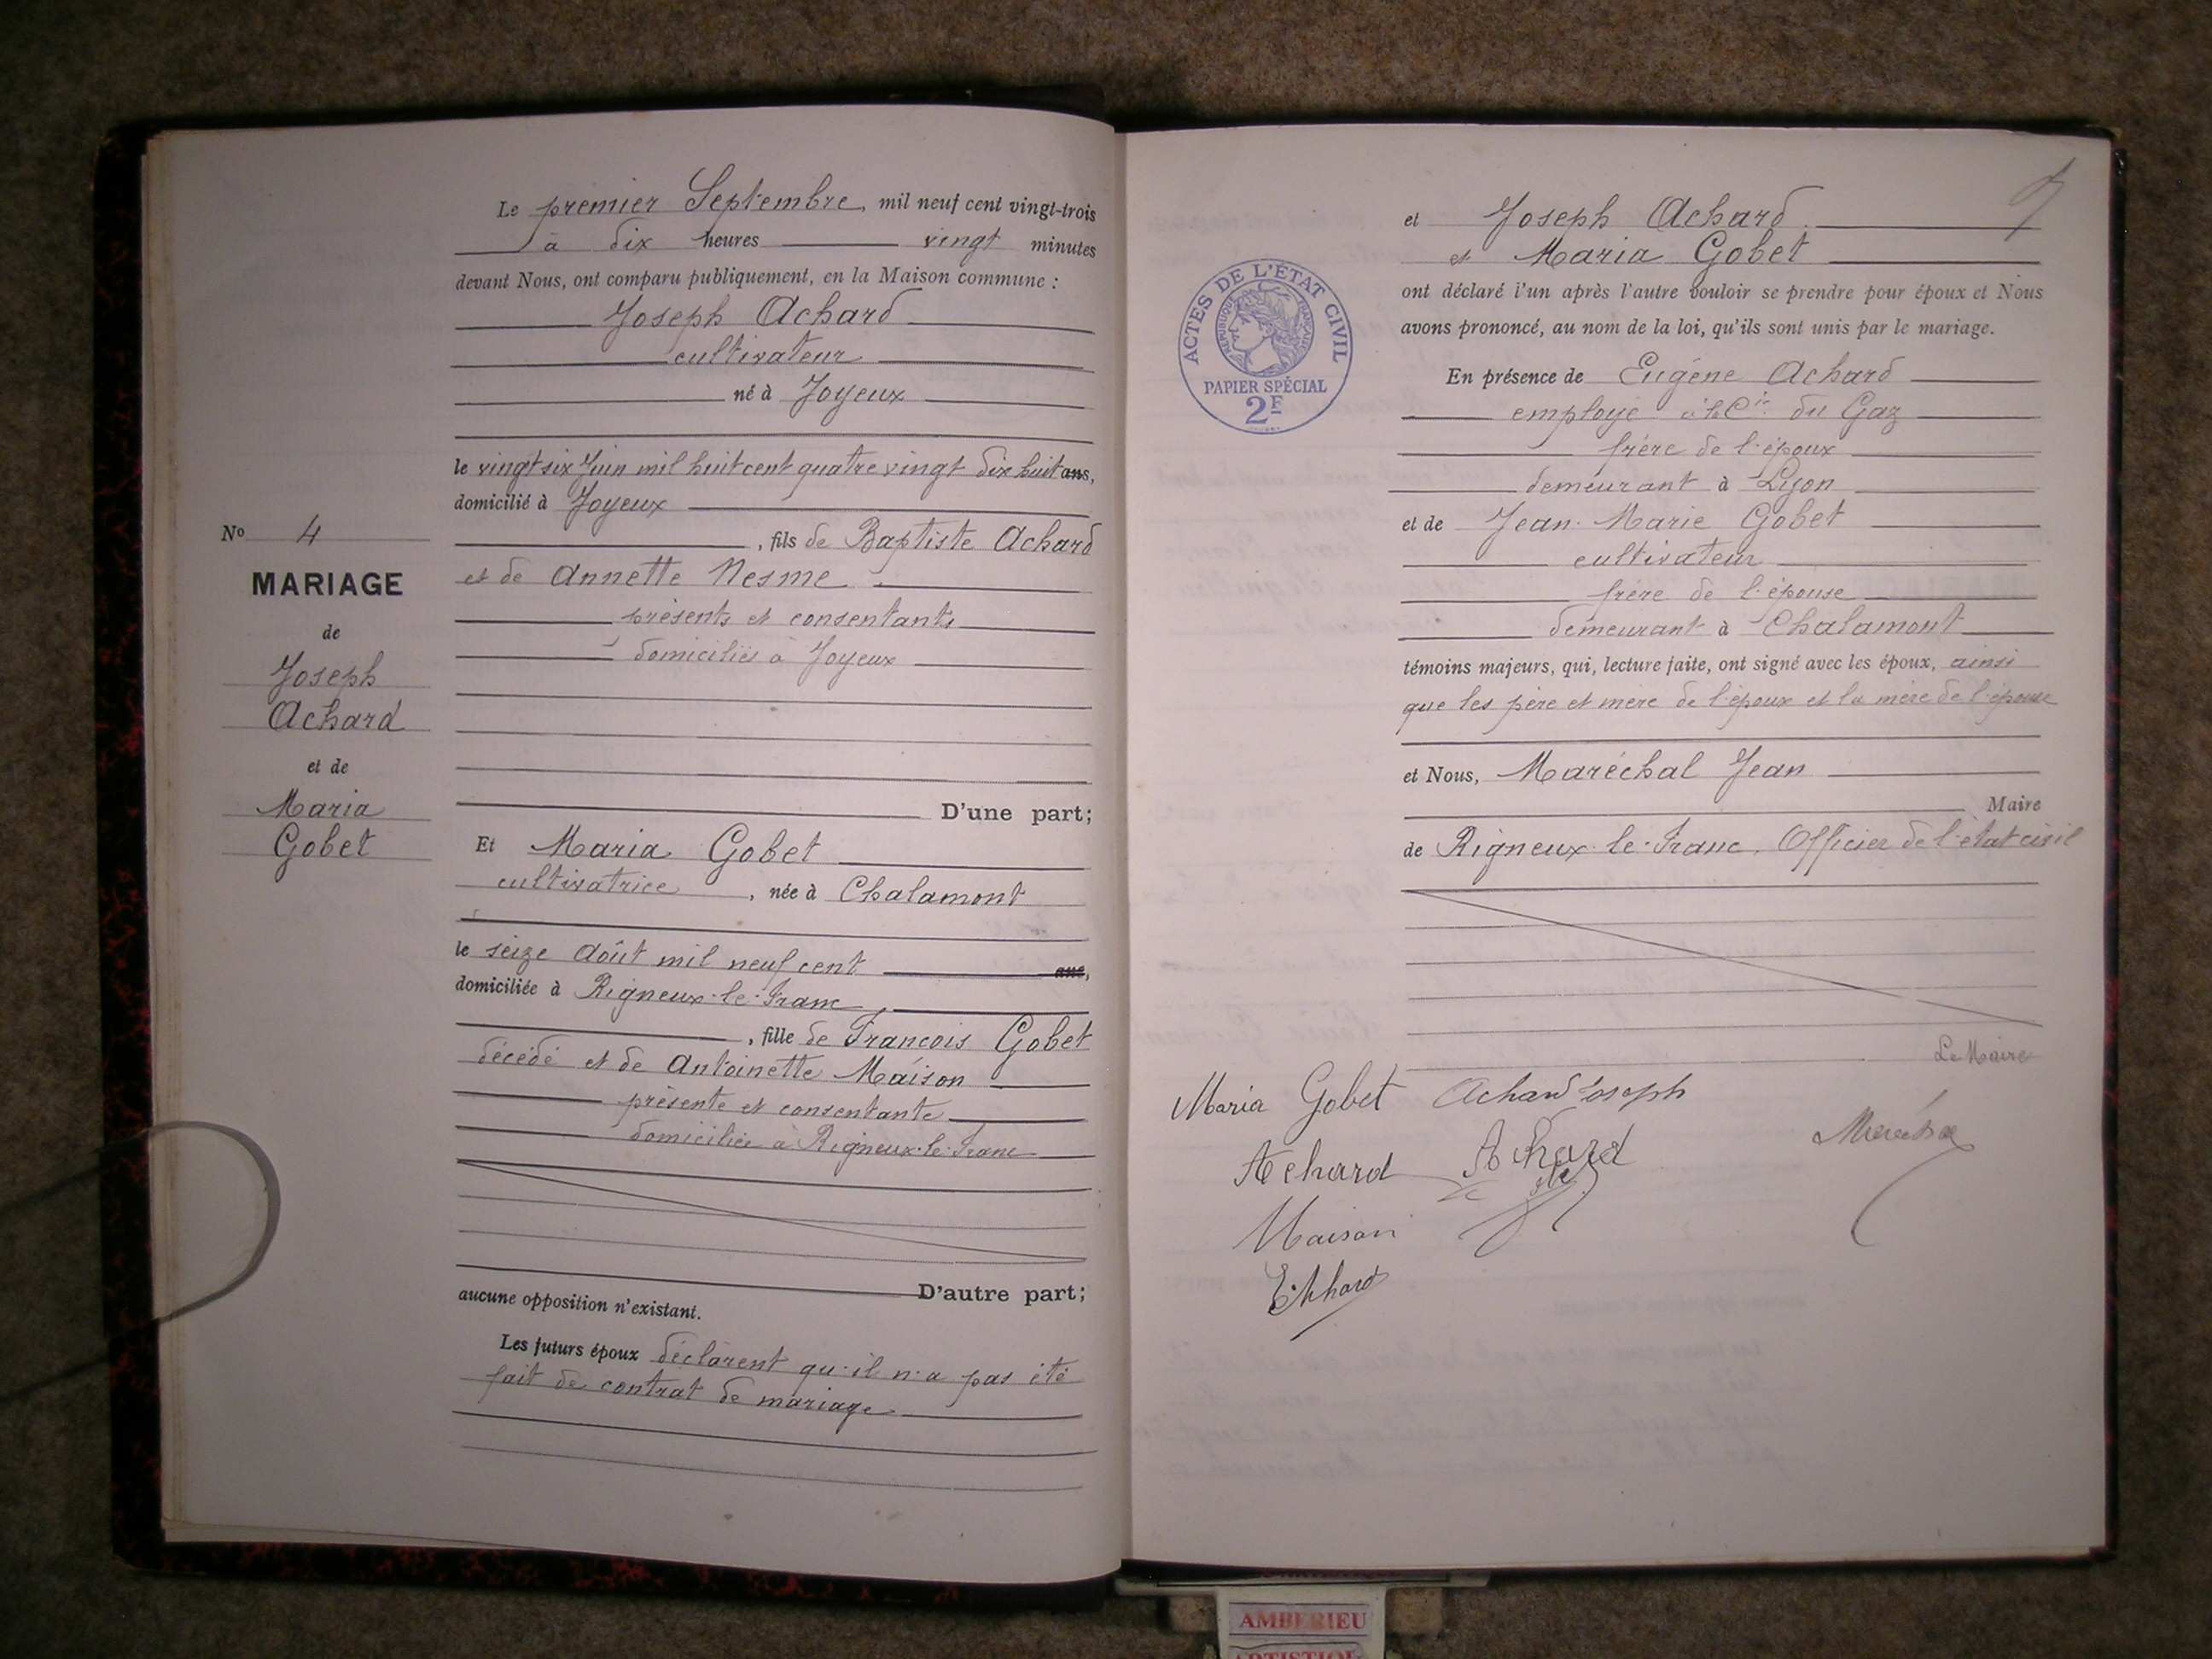 Le premier Septembre, mil neuf cent vingt-trois
à dix heures vingt minutes
devant Nous, ont comparu publiquement, en la Maison commune :
Joseph Achard
cultivateur
né à Joyeux
le vingt six Juin mil huit cent quatre vingt dix huit ans,
domicilié à Joyeux
, fils de Baptiste Achard
et de Annette Nesme
présents et consentants
domiciliés à Joyeux
D'une part;
Et Maria Gobet
cultivatrice, née à Chalamont
le seize Août mil neuf cent ans,
domiciliée à Rigneux-le-Franc
, fille de François Gobet
décédé et de Antoinette Maison
présente et consentante
domiciliée à Rigneux-le-Franc
D'autre part;
aucune opposition n'existant.
Les futurs époux déclarent qu'il n'a pas été
fait de contrat de mariage
No 4
MARIAGE
de
Joseph
Achard
et de
Maria
Gobet
et Joseph Achard
et Maria Gobet
ont déclaré l'un après l'autre vouloir se prendre pour époux et Nous
avons prononcé, au nom de la loi, qu'ils sont unis par le mariage.
En présence de Eugène Achard
employé à la Cie du Gaz
frère de l'époux
demeurant à Lyon
et de Jean-Marie Gobet
cultivateur
frère de l'épouse
demeurant à Chalamont
témoins majeurs, qui, lecture faite, ont signé avec les époux, ainsi
que les père et mère de l'époux et la mère de l'épouse
et Nous, Maréchal Jean
Maire
de Rigneux-le-Franc, Officier de l'état civil
Le Maire
Maria Gobet Achard Joseph
Achard Achard
Maréchal
Maison
E. Achard
ACTES DE L'ÉTAT CIVIL
RÉPUBLIQUE FRANÇAISE
PAPIER SPÉCIAL
2F
AMBERIEU